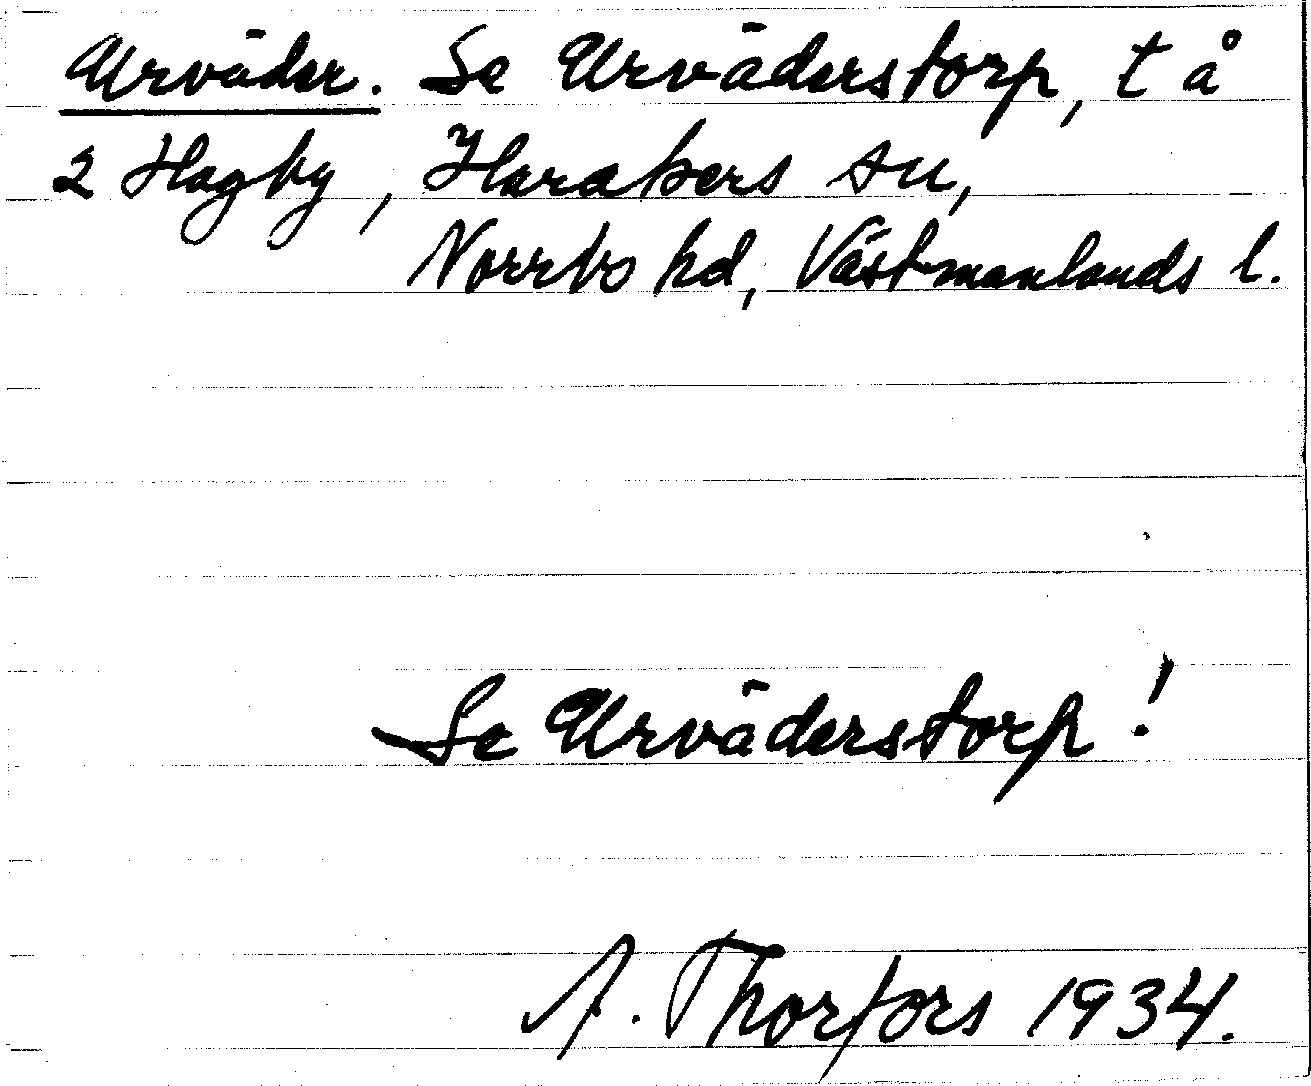 Urväder. Se Urväderstorp, t å
2 Hagby, Harakers sn,
Norrbo hd, Västmanlands l.
Se Urväderstorp!
A. Thorfors 1934.